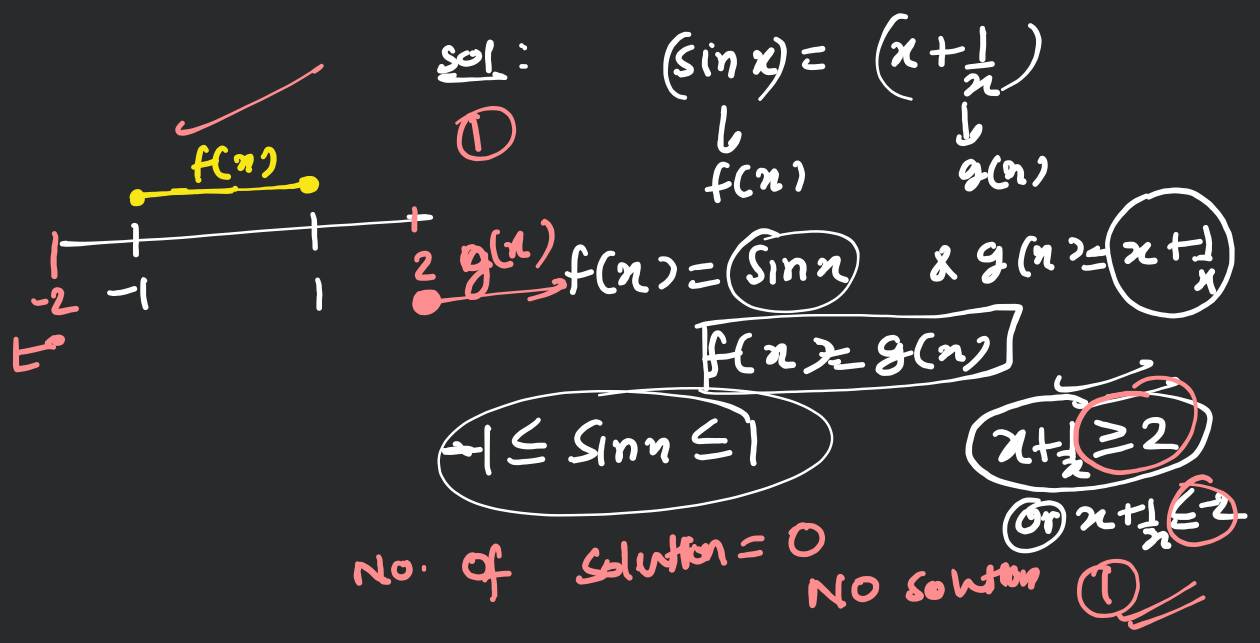 sol :
①
(sin x) = (x + 1/x)
↓ ↓
f(x) g(x)
f(x)
-2 -1 1 2
g(x)
f(x) = sin x & g(x) = x + 1/x
f(x) = g(x)
-1 ≤ sin x ≤ 1
x + 1/x ≥ 2
or x + 1/x ≤ -2
No. of solution = 0
NO solution ①